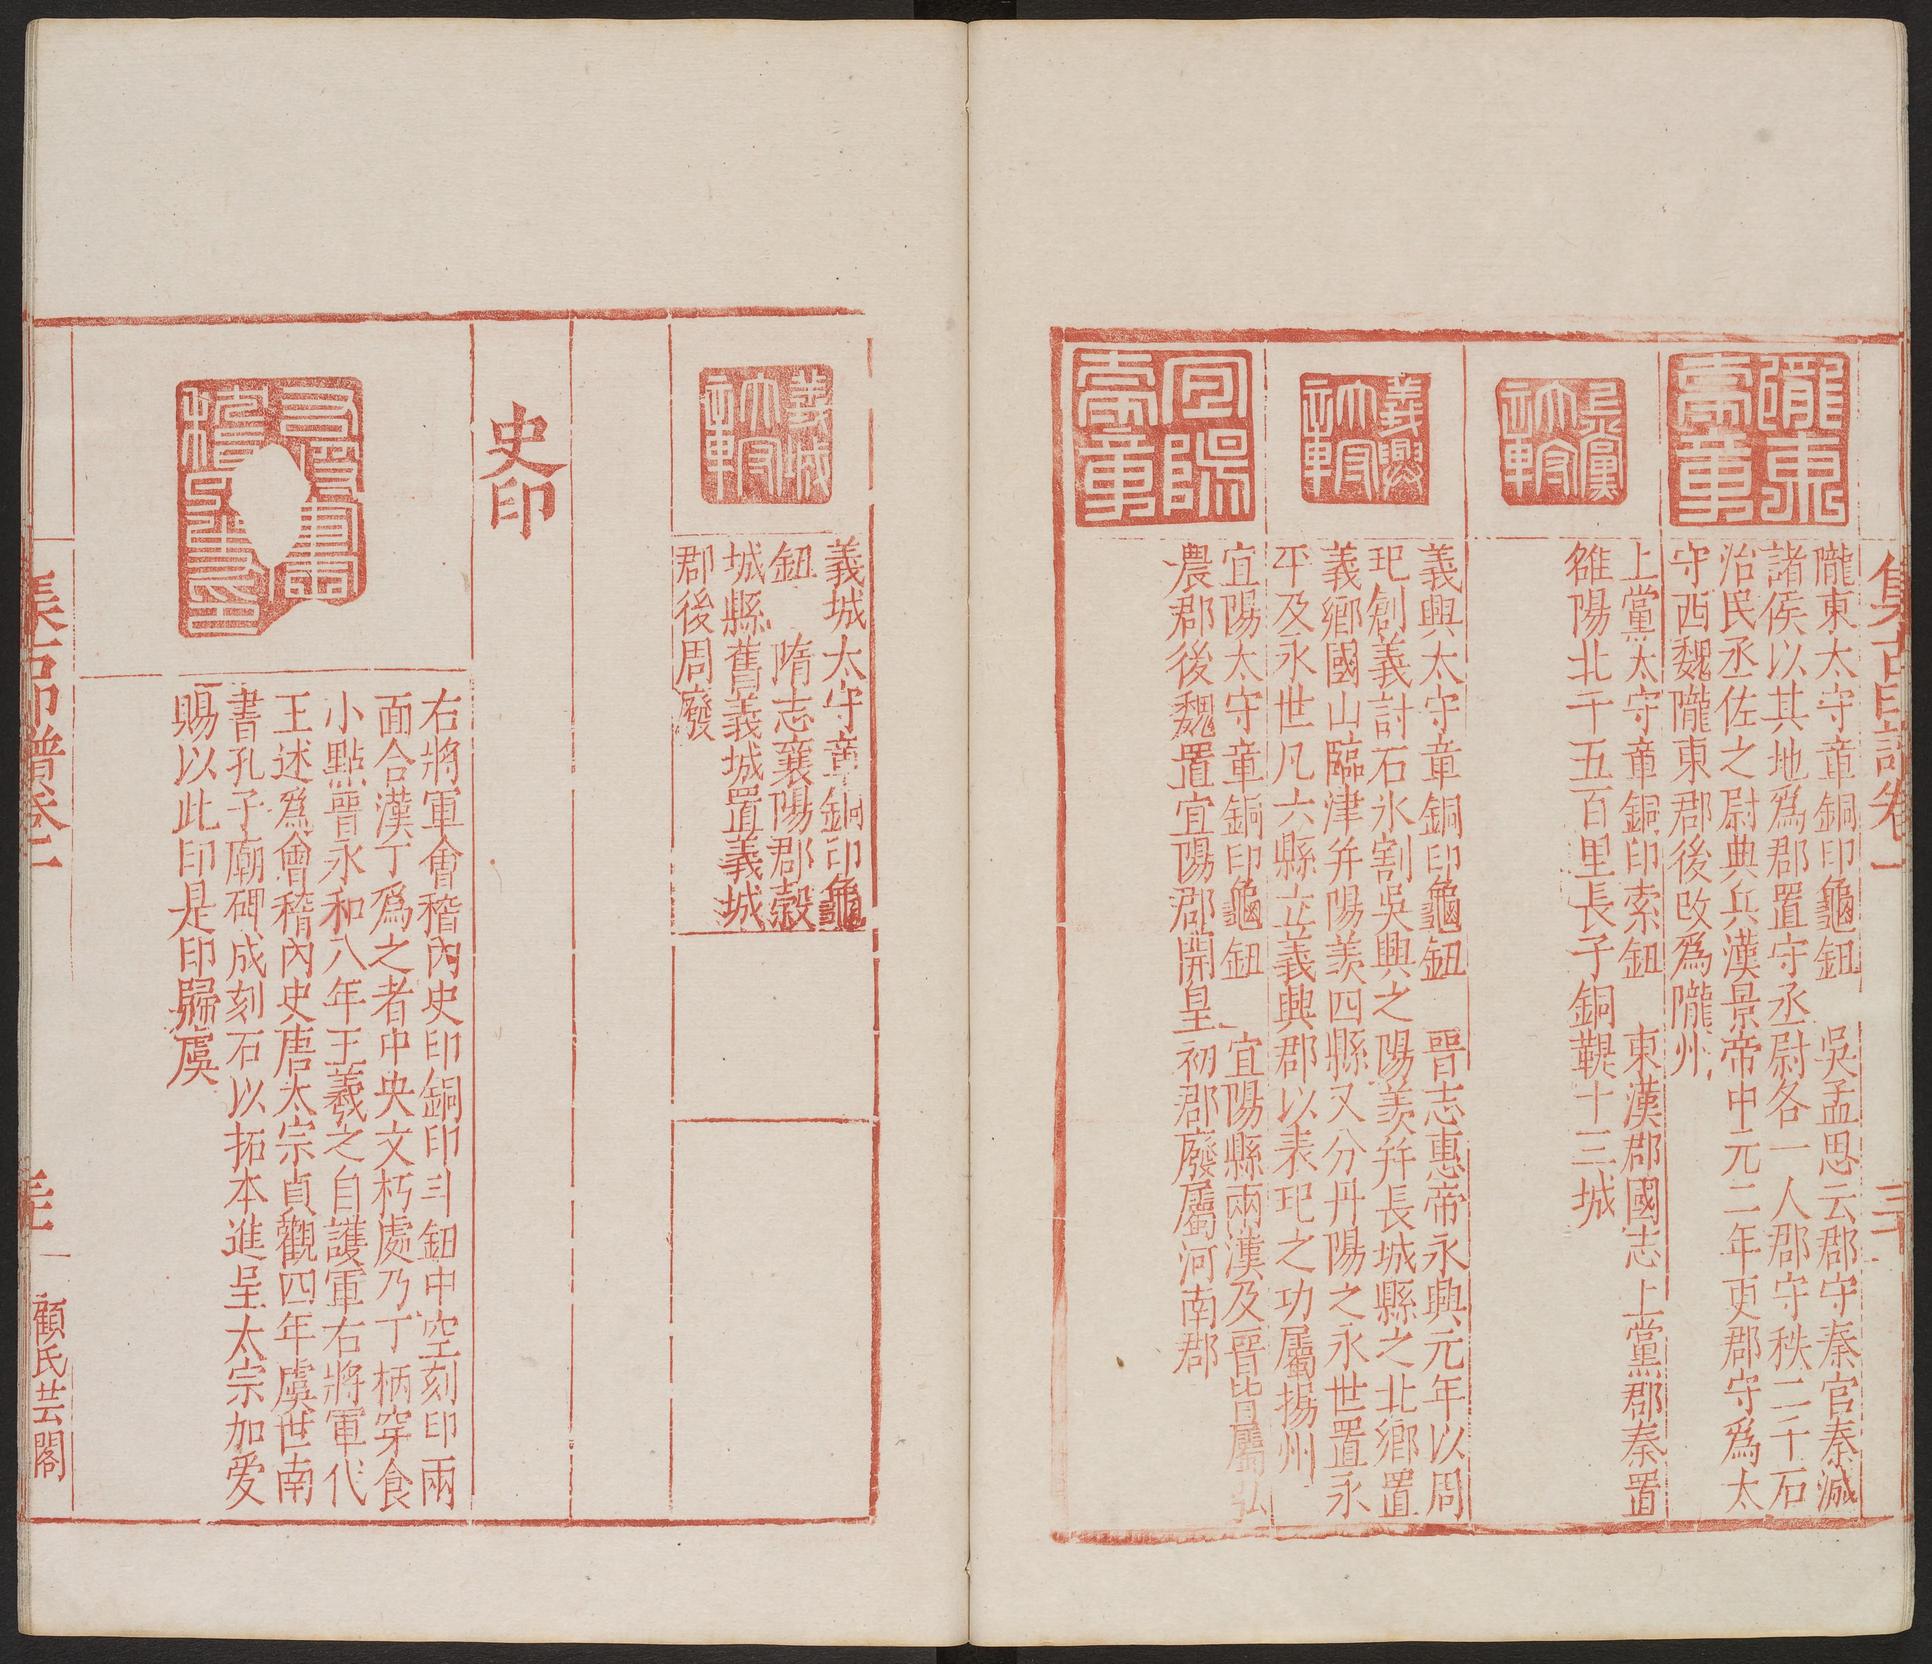 集古印譜卷二
三十
隴東太守章
隴東太守章銅印龜鈕　吳孟思云郡守秦官秦滅
諸侯以其地爲郡置守丞尉各一人郡守秩二千石
治民丞佐之尉典兵漢景帝中元二年更郡守爲太
守西魏隴東郡後改爲隴州
上黨太守章
上黨太守章銅印索鈕　東漢郡國志上黨郡秦置
雒陽北千五百里長子銅鞮十三城
義興太守章
義興太守章銅印龜鈕　晉志惠帝永興元年以周
玘創義討石氷割吳興之陽羨幷長城縣之北鄉置
義鄉國山臨津幷陽羨四縣又分丹陽之永世置永
平及永世凡六縣立義興郡以表玘之功屬揚州
宜陽太守章
宜陽太守章銅印龜鈕　宜陽縣兩漢及晉皆屬弘
農郡後魏置宜陽郡開皇初郡廢屬河南郡
義城太守章
義城太守章銅印龜
鈕　隋志襄陽郡穀
城縣舊義城置義城
郡後周廢
史印
右將軍會稽內史印銅印斗鈕中空刻印兩
面合漢丁爲之者中央文朽處乃丁柄穿食
小點晉永和八年王羲之自護軍右將軍代
王述爲會稽內史唐太宗貞觀四年虞世南
書孔子廟碑成刻石以拓本進呈太宗加爱
賜以此印是印歸虞
集古印譜卷二
顧氏芸閣